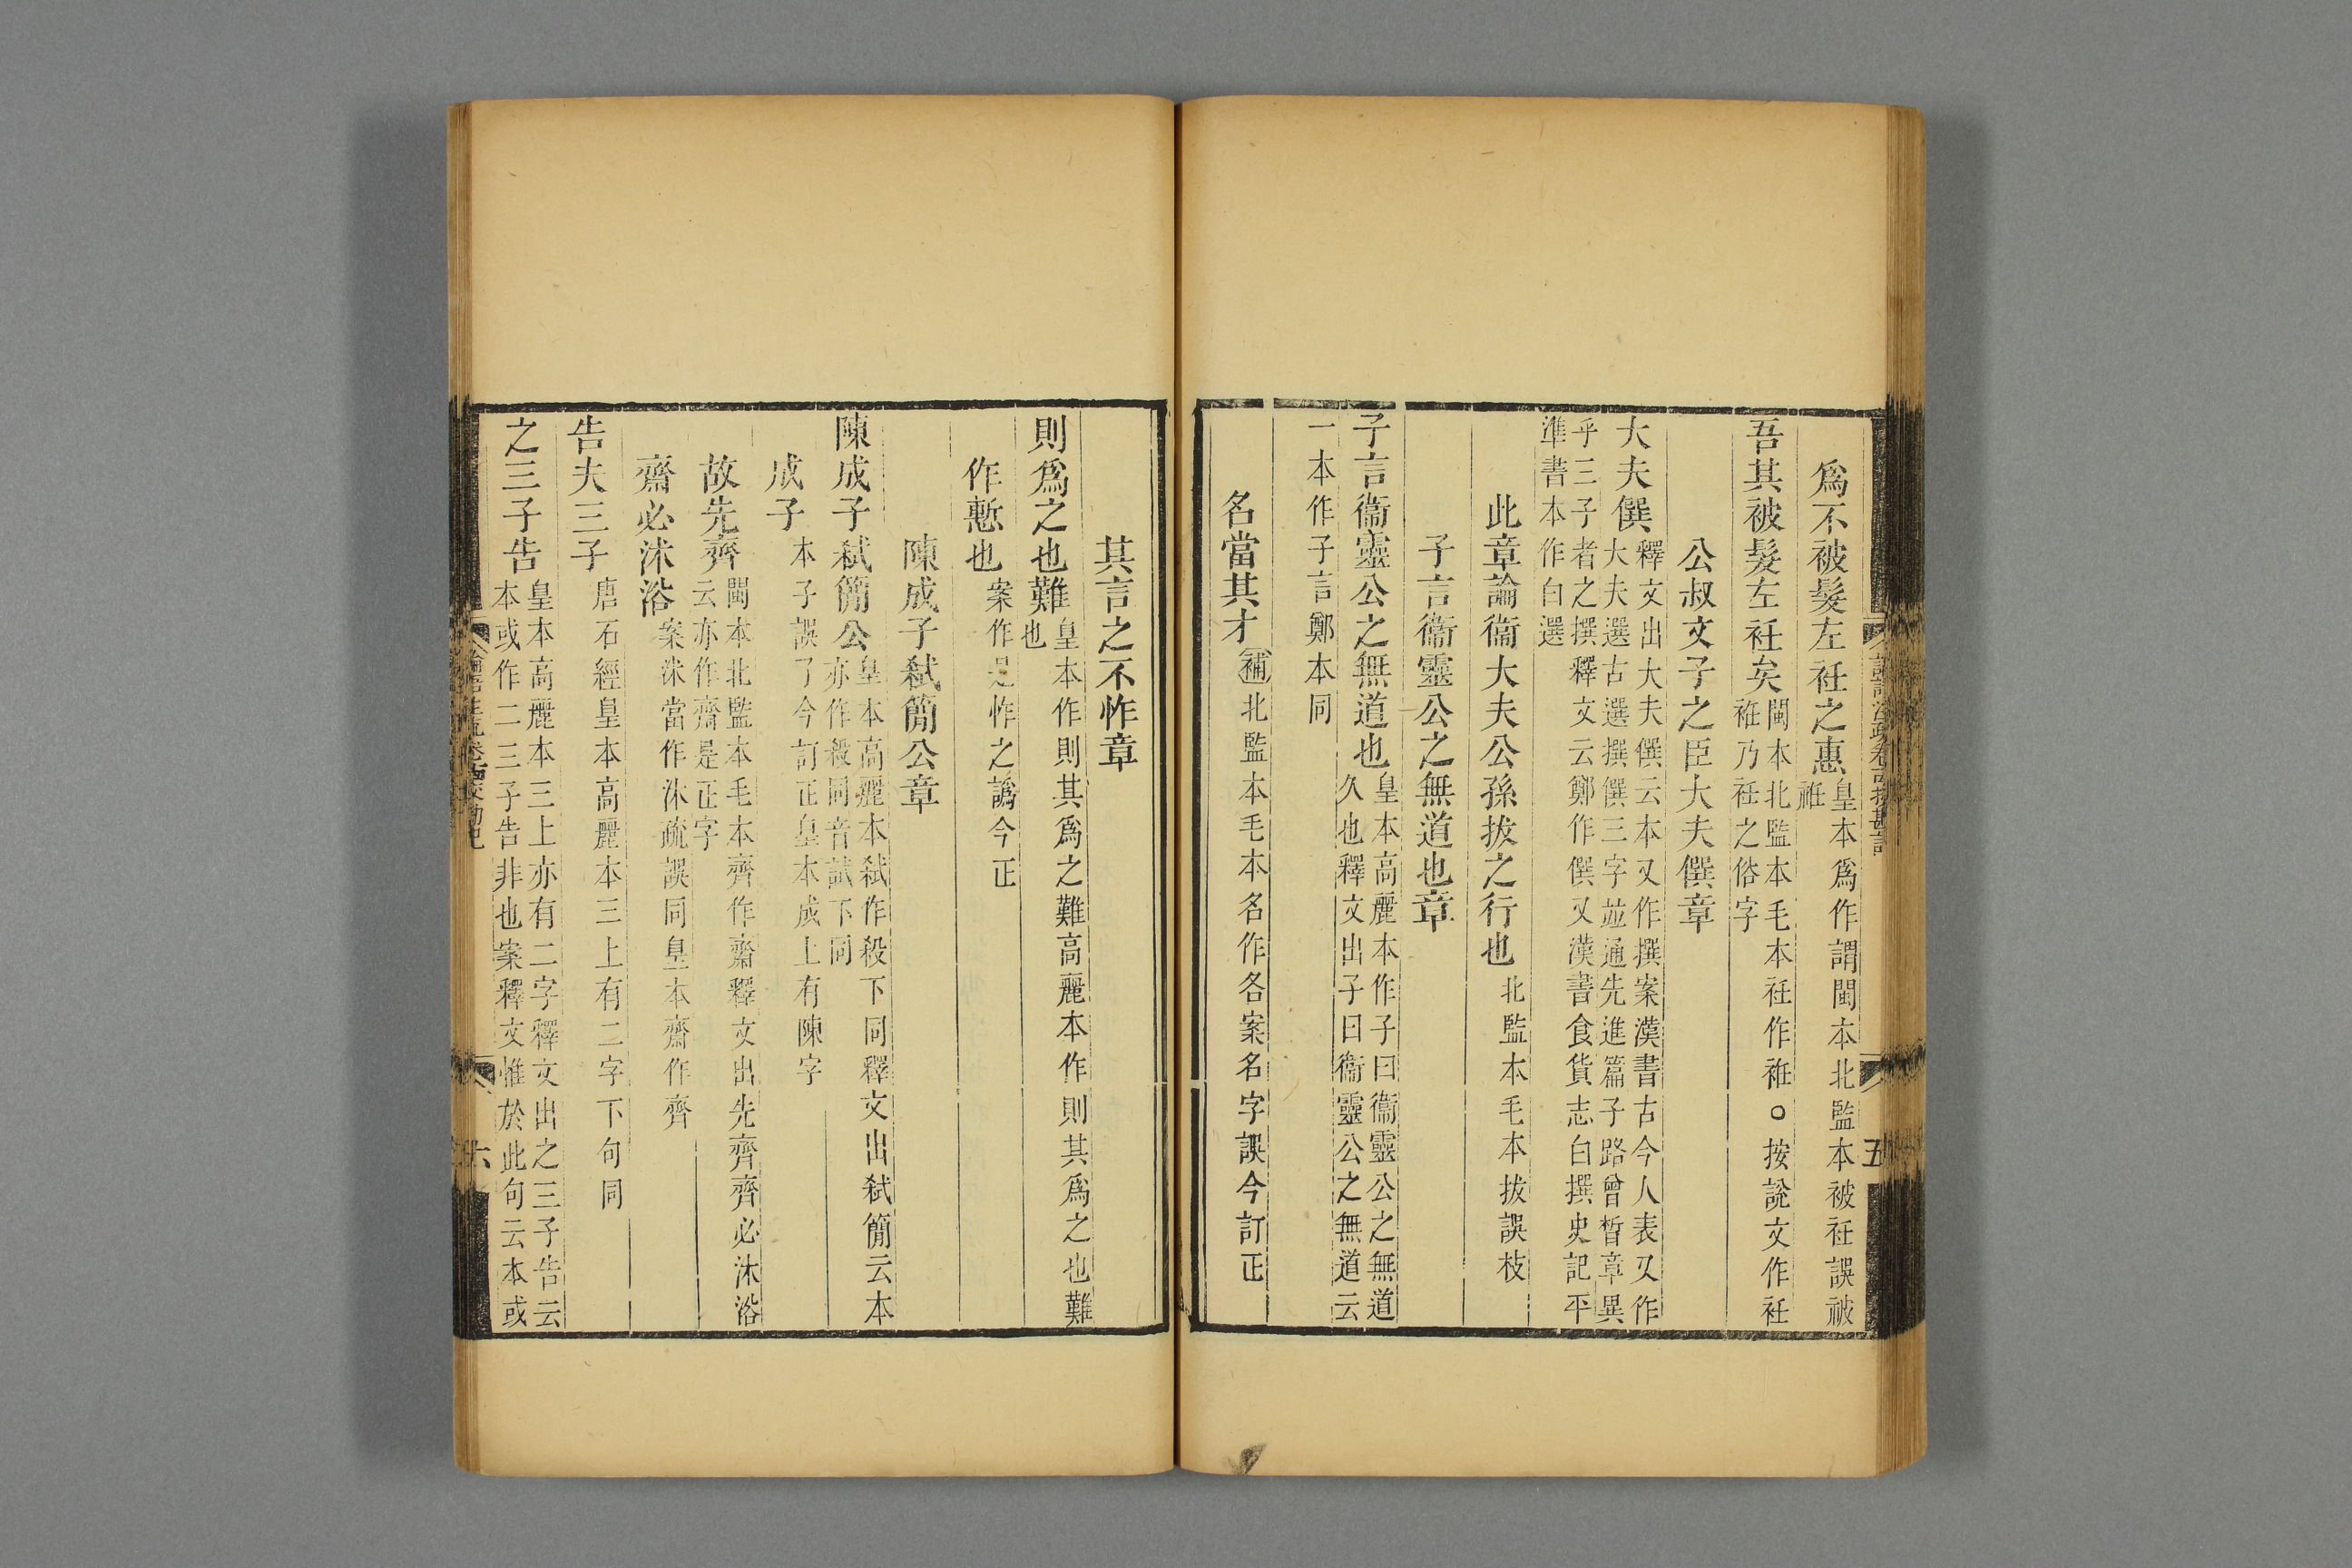 爲不被髮左衽之惠皇本爲作謂閩本北監本被衽誤祓袵
吾其被髮左衽矣閩本北監本毛本衽作袵○按說文作衽袵乃衽之俗字
公叔文子之臣大夫僎章
大夫僎釋文出大夫僎云本又作撰案漢書古今人表又作大夫選古選撰僎三字並通先進篇子路曾晳章異
乎三子者之撰釋文云鄭作僎又漢書食貨志白撰史記平準書本作白選
此章論衞大夫公孫拔之行也北監本毛本拔誤枝
子言衞靈公之無道也章
子言衞靈公之無道也皇本高麗本作子曰衞靈公之無道久也釋文出子曰衞靈公之無道云
一本作子言鄭本同
名當其才補北監本毛本名作各案名字誤今訂正
五
其言之不怍章
則爲之也難皇本作則其爲之難高麗本作則其爲之也難也
作慙也案作是怍之譌今正
陳成子弒簡公章
陳成子弒簡公皇本高麗本弒作殺下同釋文出弒簡云本亦作殺同音試下同
成子本子誤了今訂正皇本成上有陳字
故先齊閩本北監本毛本齊作齋釋文出先齊齊必沐浴云亦作齋是正字
齋必沬浴案沬當作沐疏誤同皇本齋作齊
告夫三子唐石經皇本高麗本三上有二字下句同
之三子告皇本高麗本三上亦有二字釋文出之三子告云本或作二三子告非也案釋文惟於此句云本或
六